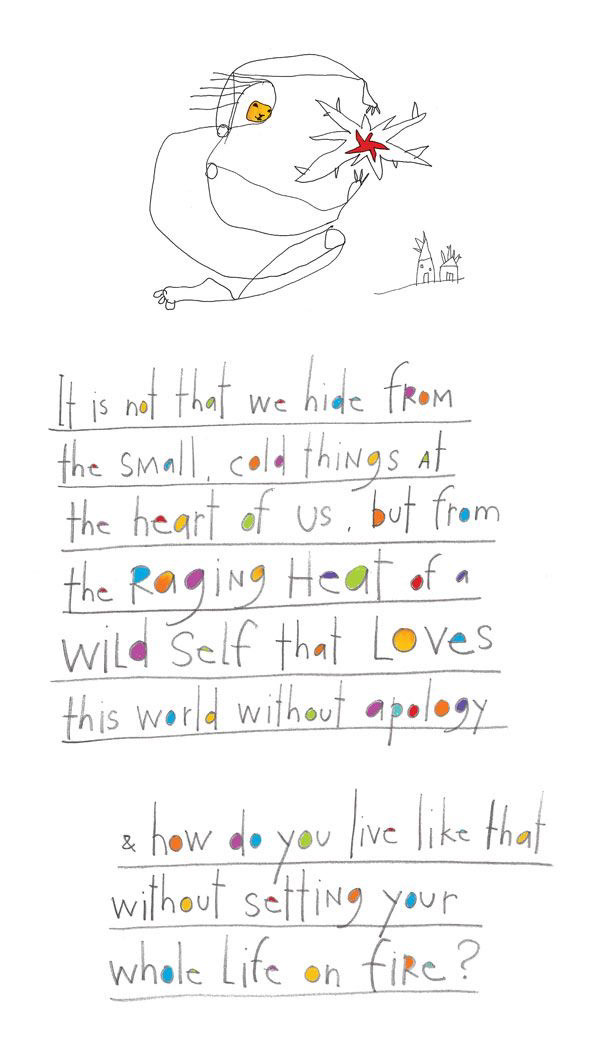 It is not that we hide fRoM
the SMall, cold thiNgs At
the heart of us, but from
the RagiNg Heat of a
WiLd Self that LoVes
this world without apology
& how do you live like that
without settiNg your
whole Life on fiRe?